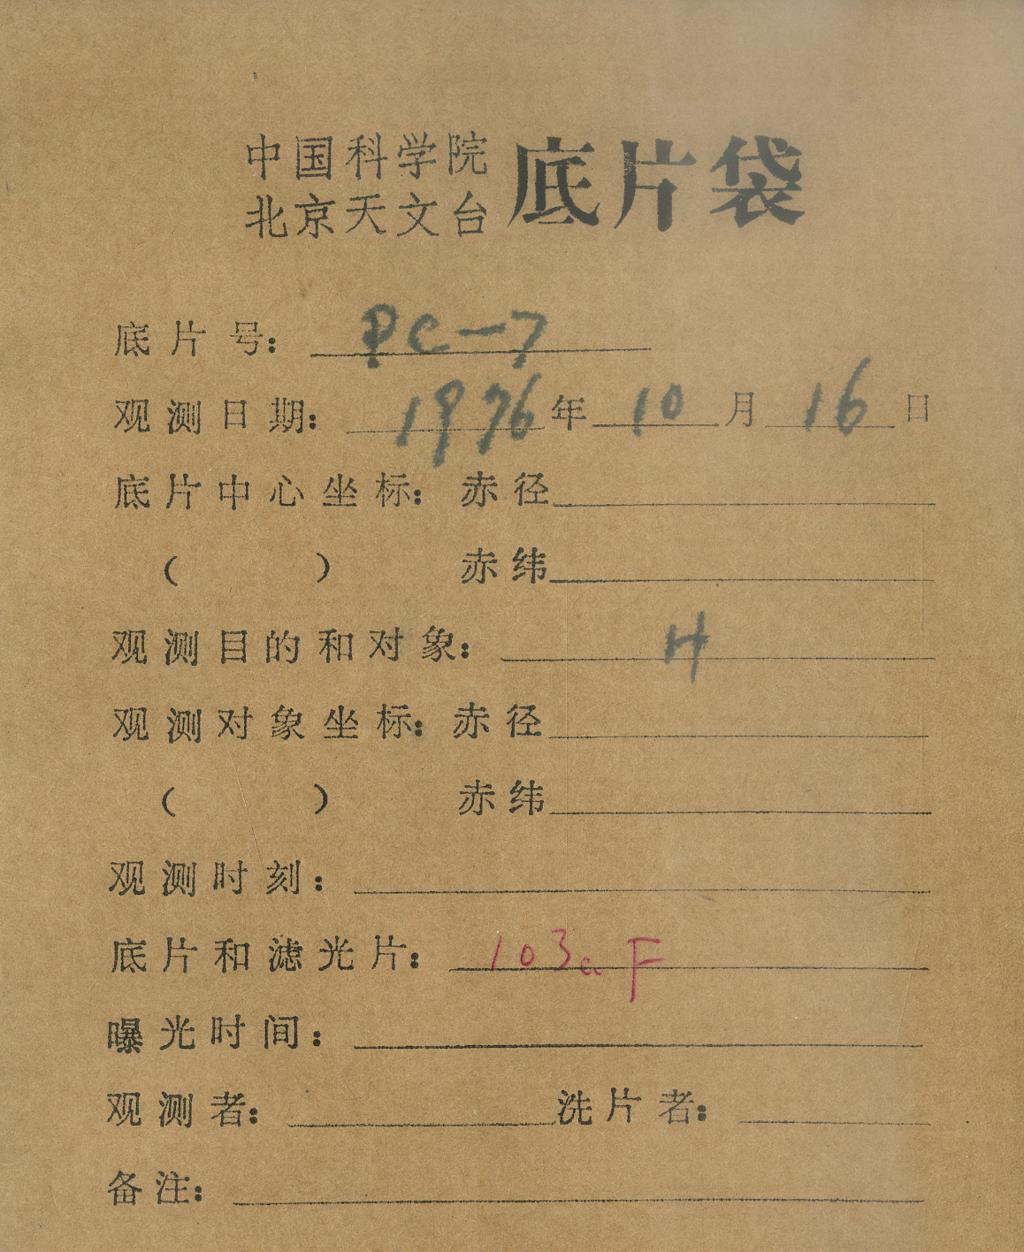 中国科学院
北京天文台
底片袋
底片号：PC-7
观测日期：1976年10月16日
底片中心坐标：赤径
（ ） 赤纬
观测目的和对象：H
观测对象坐标：赤径
（ ） 赤纬
观测时刻：
底片和滤光片：103a F
曝光时间：
观测者： 洗片者：
备注：